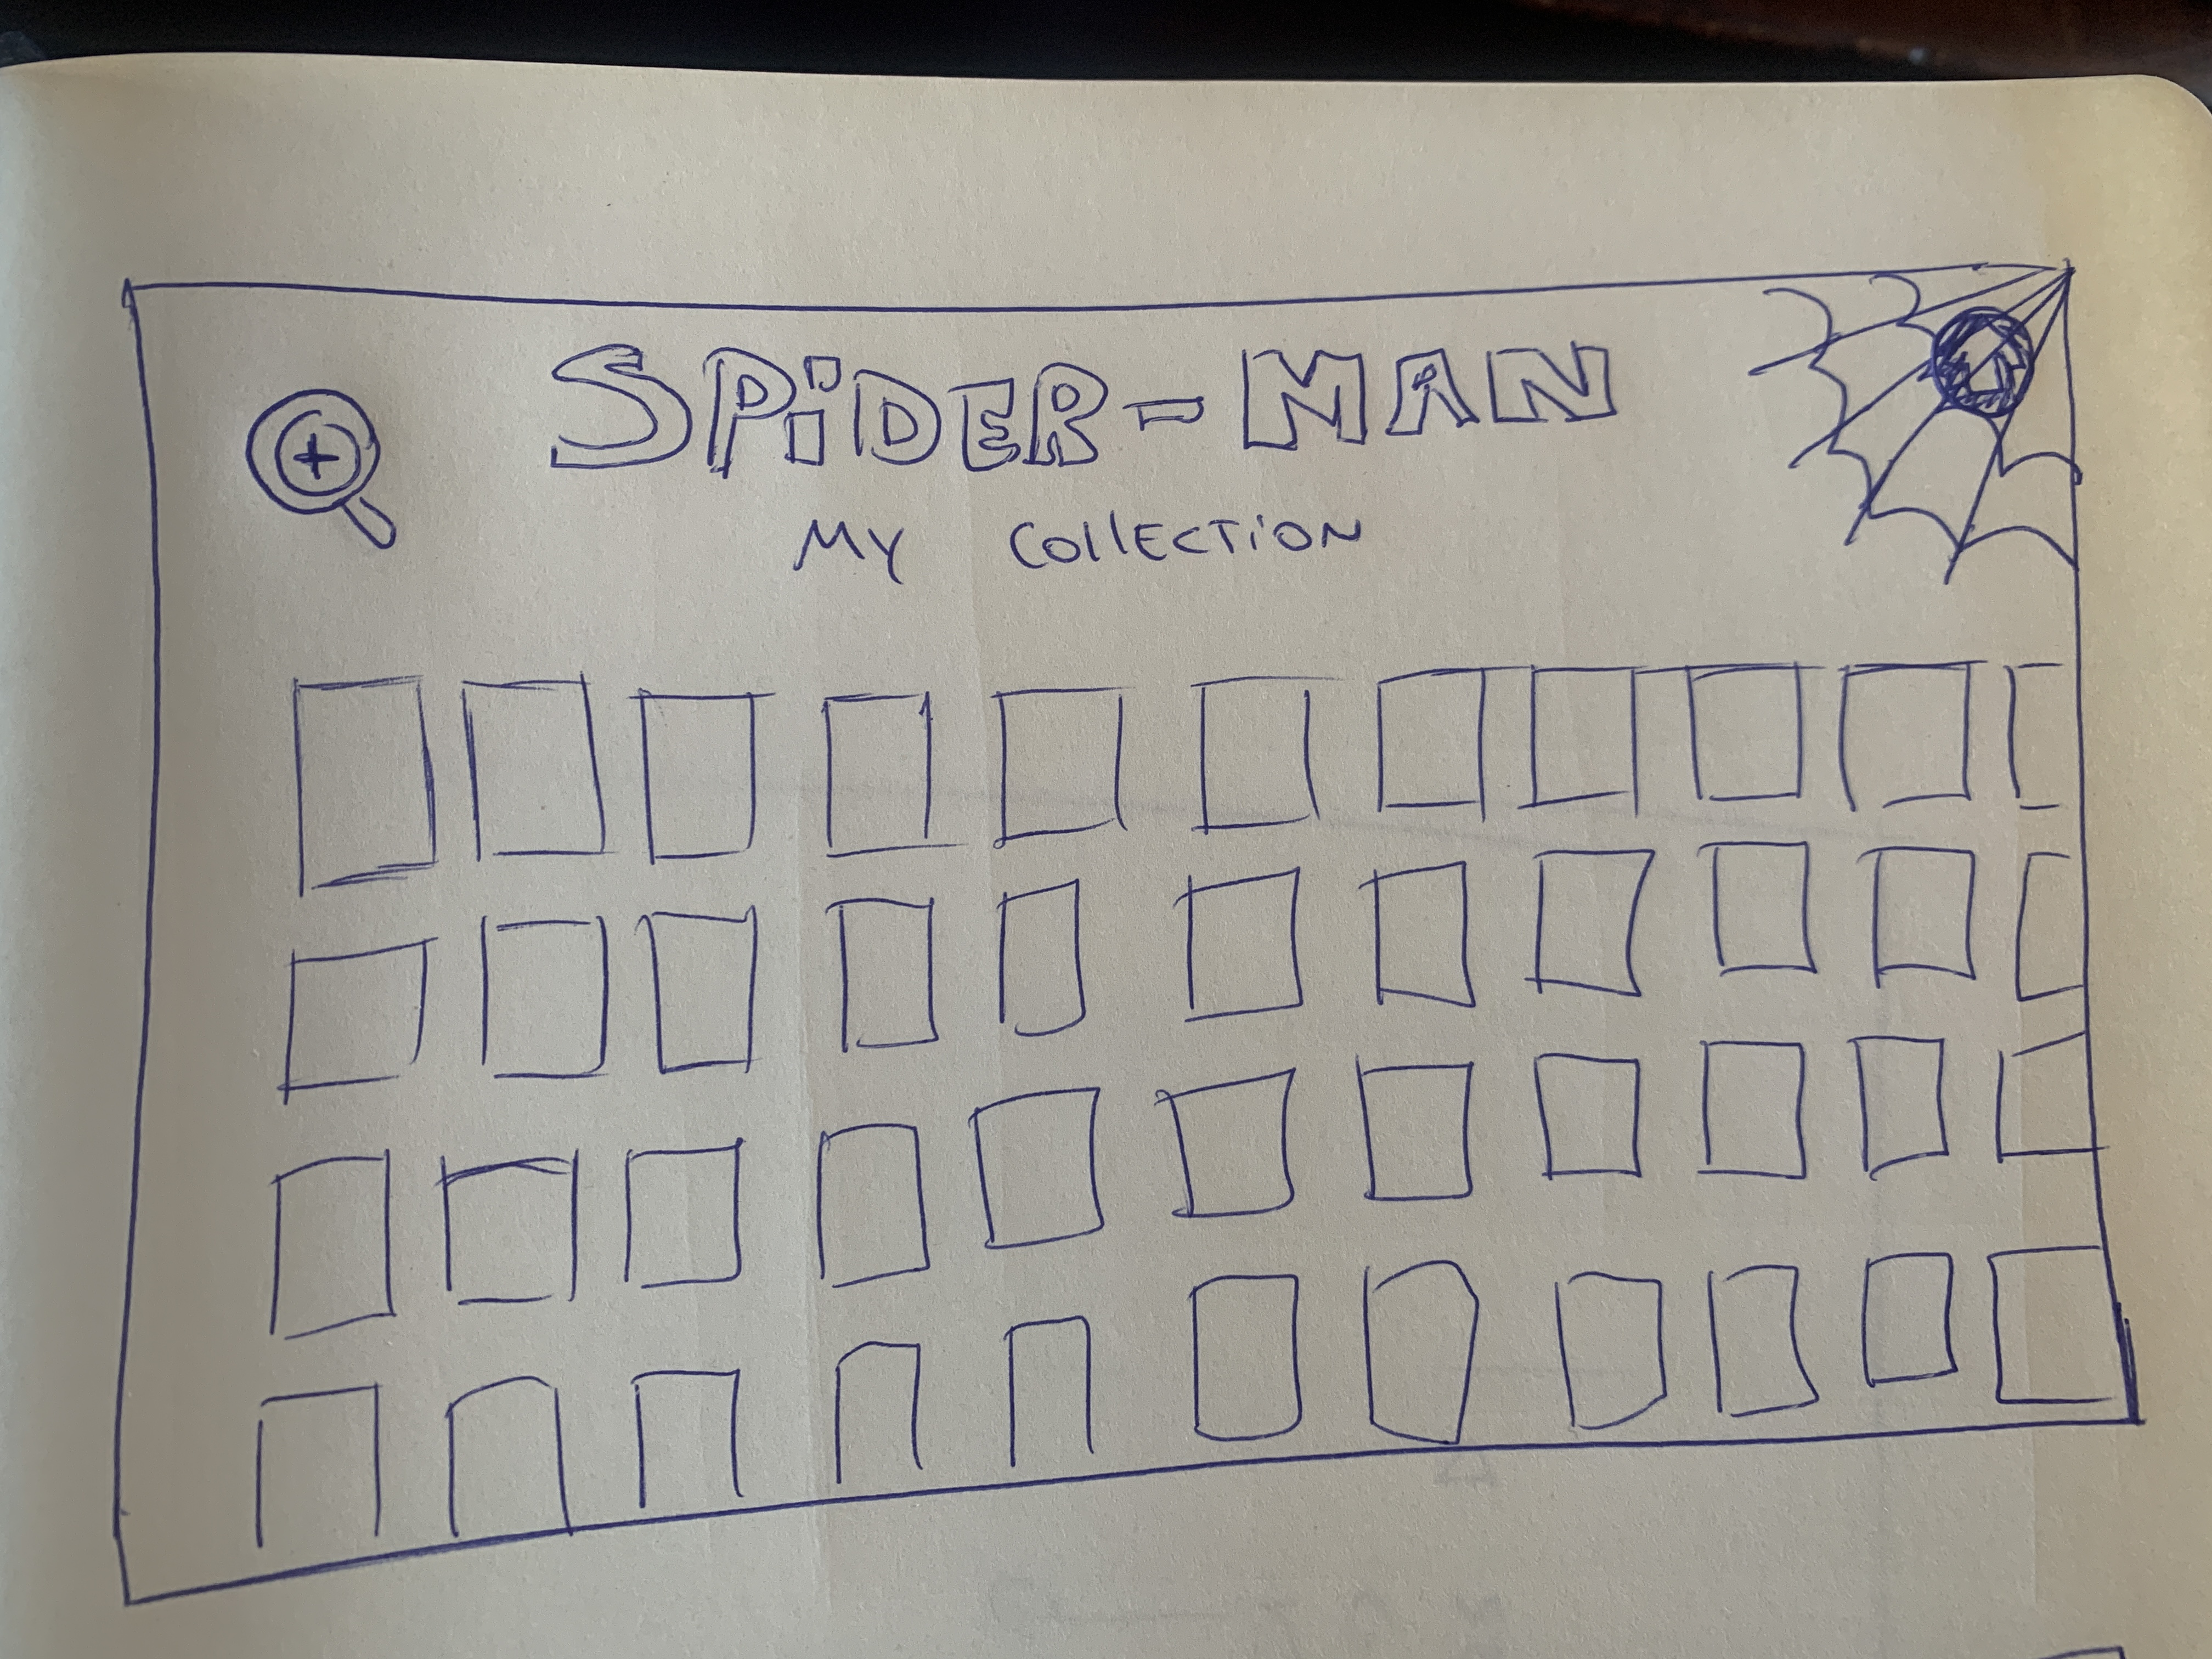 SPiDER-MAN
MY COllECTiON